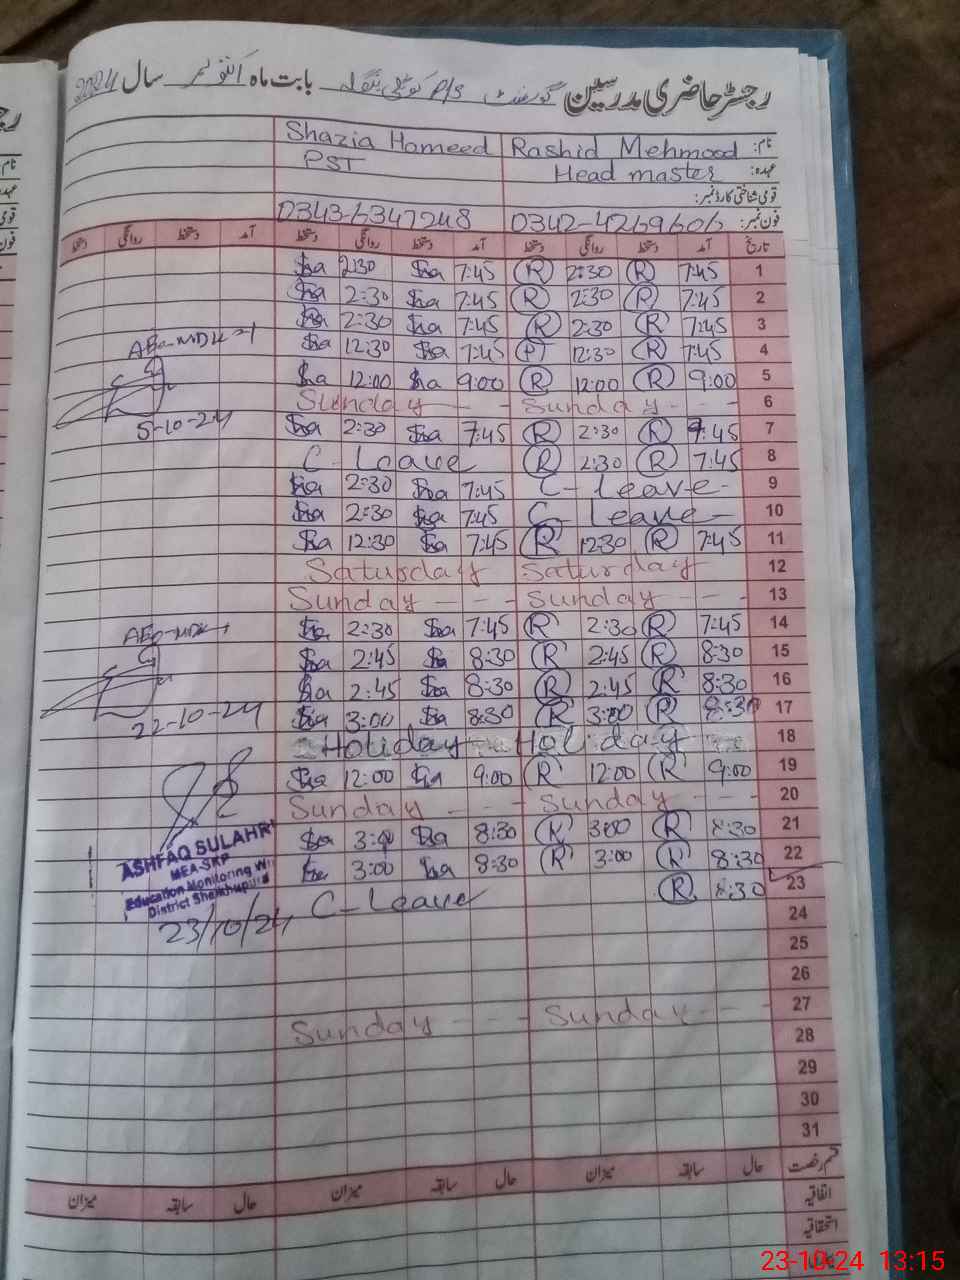 رجسٹر حاضری مدرسین گورنمنٹ P/S بابت ماہ اکتوبر سال 2024
Shazia Hameed Rashid Mehmood نام:
PST Head master عہدہ:
قومی شناختی کارڈ نمبر:
0343-6347248 0342-4269606 فون نمبر:
دستخط روانگی دستخط آمد دستخط روانگی دستخط آمد دستخط روانگی دستخط آمد تاریخ
Sha 2:30 Sha 7:45 R 2:30 R 7:45 1
Sha 2:30 Sha 7:45 R 2:30 R 7:45 2
Sha 2:30 Sha 7:45 R 2:30 R 7:45 3
Sha 12:30 Sha 7:45 R 12:30 R 7:45 4
Sha 12:00 Sha 9:00 R 12:00 R 9:00 5
Sunday - - - Sunday - - - 6
5-10-24
Sha 2:30 Sha 7:45 R 2:30 R 7:45 7
C-Leave R 2:30 R 7:45 8
Sha 2:30 Sha 7:45 C-Leave- 9
Sha 2:30 Sha 7:45 C-Leave- 10
Sha 12:30 Sha 7:45 R 12:30 R 7:45 11
Saturday Saturday 12
Sunday - - - Sunday - - - 13
Sha 2:30 Sha 7:45 R 2:30 R 7:45 14
Sha 2:45 Sha 8:30 R 2:45 R 8:30 15
Sha 2:45 Sha 8:30 R 2:45 R 8:30 16
Sha 3:00 Sha 8:30 R 3:00 R 8:30 17
22-10-24
Holiday Holiday 18
Sha 12:00 Sha 9:00 R 12:00 R 9:00 19
Sunday - - - Sunday - - - 20
Sha 3:00 Sha 8:30 R 3:00 R 8:30 21
Sha 3:00 Sha 8:30 R 3:00 R 8:30 22
ASHFAQ SULAHRI
MEA-SKP
Education Monitoring Wi
District Sheikhupura
C-Leave R 8:30 23
23/10/24
24
25
26
Sunday - - - Sunday - - - 27
28
29
30
31
میزان سابقہ حال میزان سابقہ حال میزان سابقہ حال قسم رخصت
اتفاقیہ
استحقاقیہ
23-10-24 13:15